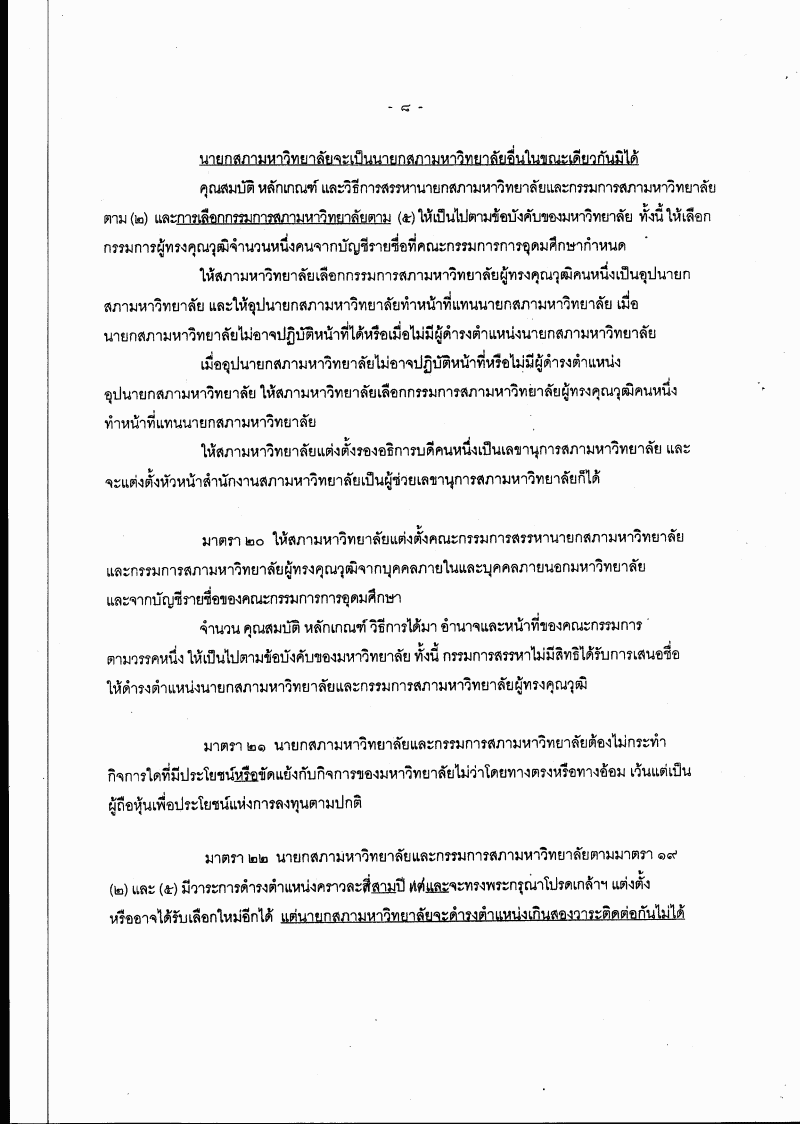 - ๘ -
นายกสภามหาวิทยาลัยจะเป็นนายกสภามหาวิทยาลัยอื่นในขณะเดียวกันมิได้
คุณสมบัติ หลักเกณฑ์ และวิธีการสรรหานายกสภามหาวิทยาลัยและกรรมการสภามหาวิทยาลัย
ตาม (๒) และการเลือกกรรมการสภามหาวิทยาลัยตาม (๕) ให้เป็นไปตามข้อบังคับของมหาวิทยาลัย ทั้งนี้ ให้เลือก
กรรมการผู้ทรงคุณวุฒิจำนวนหนึ่งคนจากบัญชีรายชื่อที่คณะกรรมการการอุดมศึกษากำหนด
ให้สภามหาวิทยาลัยเลือกกรรมการสภามหาวิทยาลัยผู้ทรงคุณวุฒิคนหนึ่งเป็นอุปนายก
สภามหาวิทยาลัย และให้อุปนายกสภามหาวิทยาลัยทำหน้าที่แทนนายกสภามหาวิทยาลัย เมื่อ
นายกสภามหาวิทยาลัยไม่อาจปฏิบัติหน้าที่ได้หรือเมื่อไม่มีผู้ดำรงตำแหน่งนายกสภามหาวิทยาลัย
เมื่ออุปนายกสภามหาวิทยาลัยไม่อาจปฏิบัติหน้าที่หรือไม่มีผู้ดำรงตำแหน่ง
อุปนายกสภามหาวิทยาลัย ให้สภามหาวิทยาลัยเลือกกรรมการสภามหาวิทยาลัยผู้ทรงคุณวุฒิคนหนึ่ง
ทำหน้าที่แทนนายกสภามหาวิทยาลัย
ให้สภามหาวิทยาลัยแต่งตั้งรองอธิการบดีคนหนึ่งเป็นเลขานุการสภามหาวิทยาลัย และ
จะแต่งตั้งหัวหน้าสำนักงานสภามหาวิทยาลัยเป็นผู้ช่วยเลขานุการสภามหาวิทยาลัยก็ได้
มาตรา ๒๐ ให้สภามหาวิทยาลัยแต่งตั้งคณะกรรมการสรรหานายกสภามหาวิทยาลัย
และกรรมการสภามหาวิทยาลัยผู้ทรงคุณวุฒิจากบุคคลภายในและบุคคลภายนอกมหาวิทยาลัย
และจากบัญชีรายชื่อของคณะกรรมการการอุดมศึกษา
จำนวน คุณสมบัติ หลักเกณฑ์ วิธีการได้มา อำนาจและหน้าที่ของคณะกรรมการ
ตามวรรคหนึ่ง ให้เป็นไปตามข้อบังคับของมหาวิทยาลัย ทั้งนี้ กรรมการสรรหาไม่มีสิทธิได้รับการเสนอชื่อ
ให้ดำรงตำแหน่งนายกสภามหาวิทยาลัยและกรรมการสภามหาวิทยาลัยผู้ทรงคุณวุฒิ
มาตรา ๒๑ นายกสภามหาวิทยาลัยและกรรมการสภามหาวิทยาลัยต้องไม่กระทำ
กิจการใดที่มีประโยชน์หรือขัดแย้งกับกิจการของมหาวิทยาลัยไม่ว่าโดยทางตรงหรือทางอ้อม เว้นแต่เป็น
ผู้ถือหุ้นเพื่อประโยชน์แห่งการลงทุนตามปกติ
มาตรา ๒๒ นายกสภามหาวิทยาลัยและกรรมการสภามหาวิทยาลัยตามมาตรา ๑๙
(๒) และ (๕) มีวาระการดำรงตำแหน่งคราวละสี่สามปี แต่และจะทรงพระกรุณาโปรดเกล้าฯ แต่งตั้ง
หรืออาจได้รับเลือกใหม่อีกได้ แต่นายกสภามหาวิทยาลัยจะดำรงตำแหน่งเกินสองวาระติดต่อกันไม่ได้